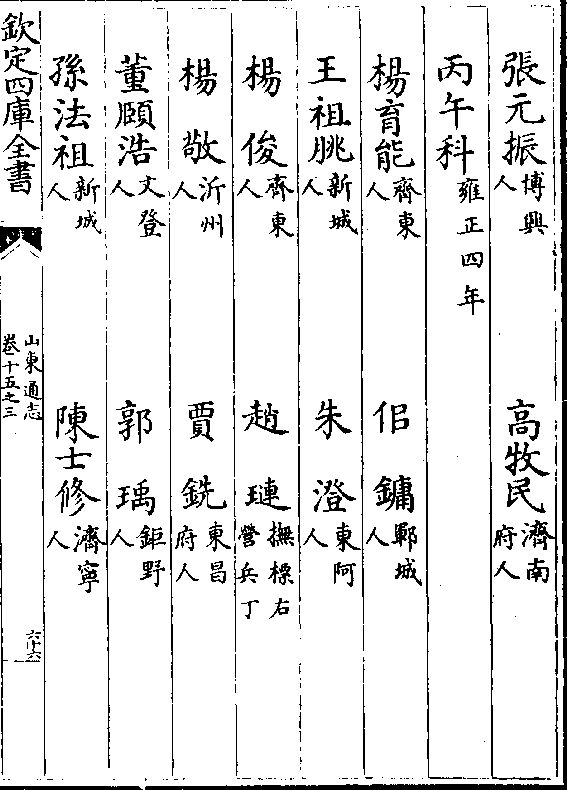 張元振博興人　高牧民濟南府人
丙午科雍正四年
楊育能齊東人　佀鏞鄆城人
王祖朓新城人　朱澄東阿人
楊俊齊東人　趙璉撫標右營兵丁
楊敬沂州人　賈銑東昌府人
董頤浩文登人　郭瑀鉅野人
孫法祖新城人　陳士修濟寧人
欽定四庫全書　山東通志卷十五之三　六十六